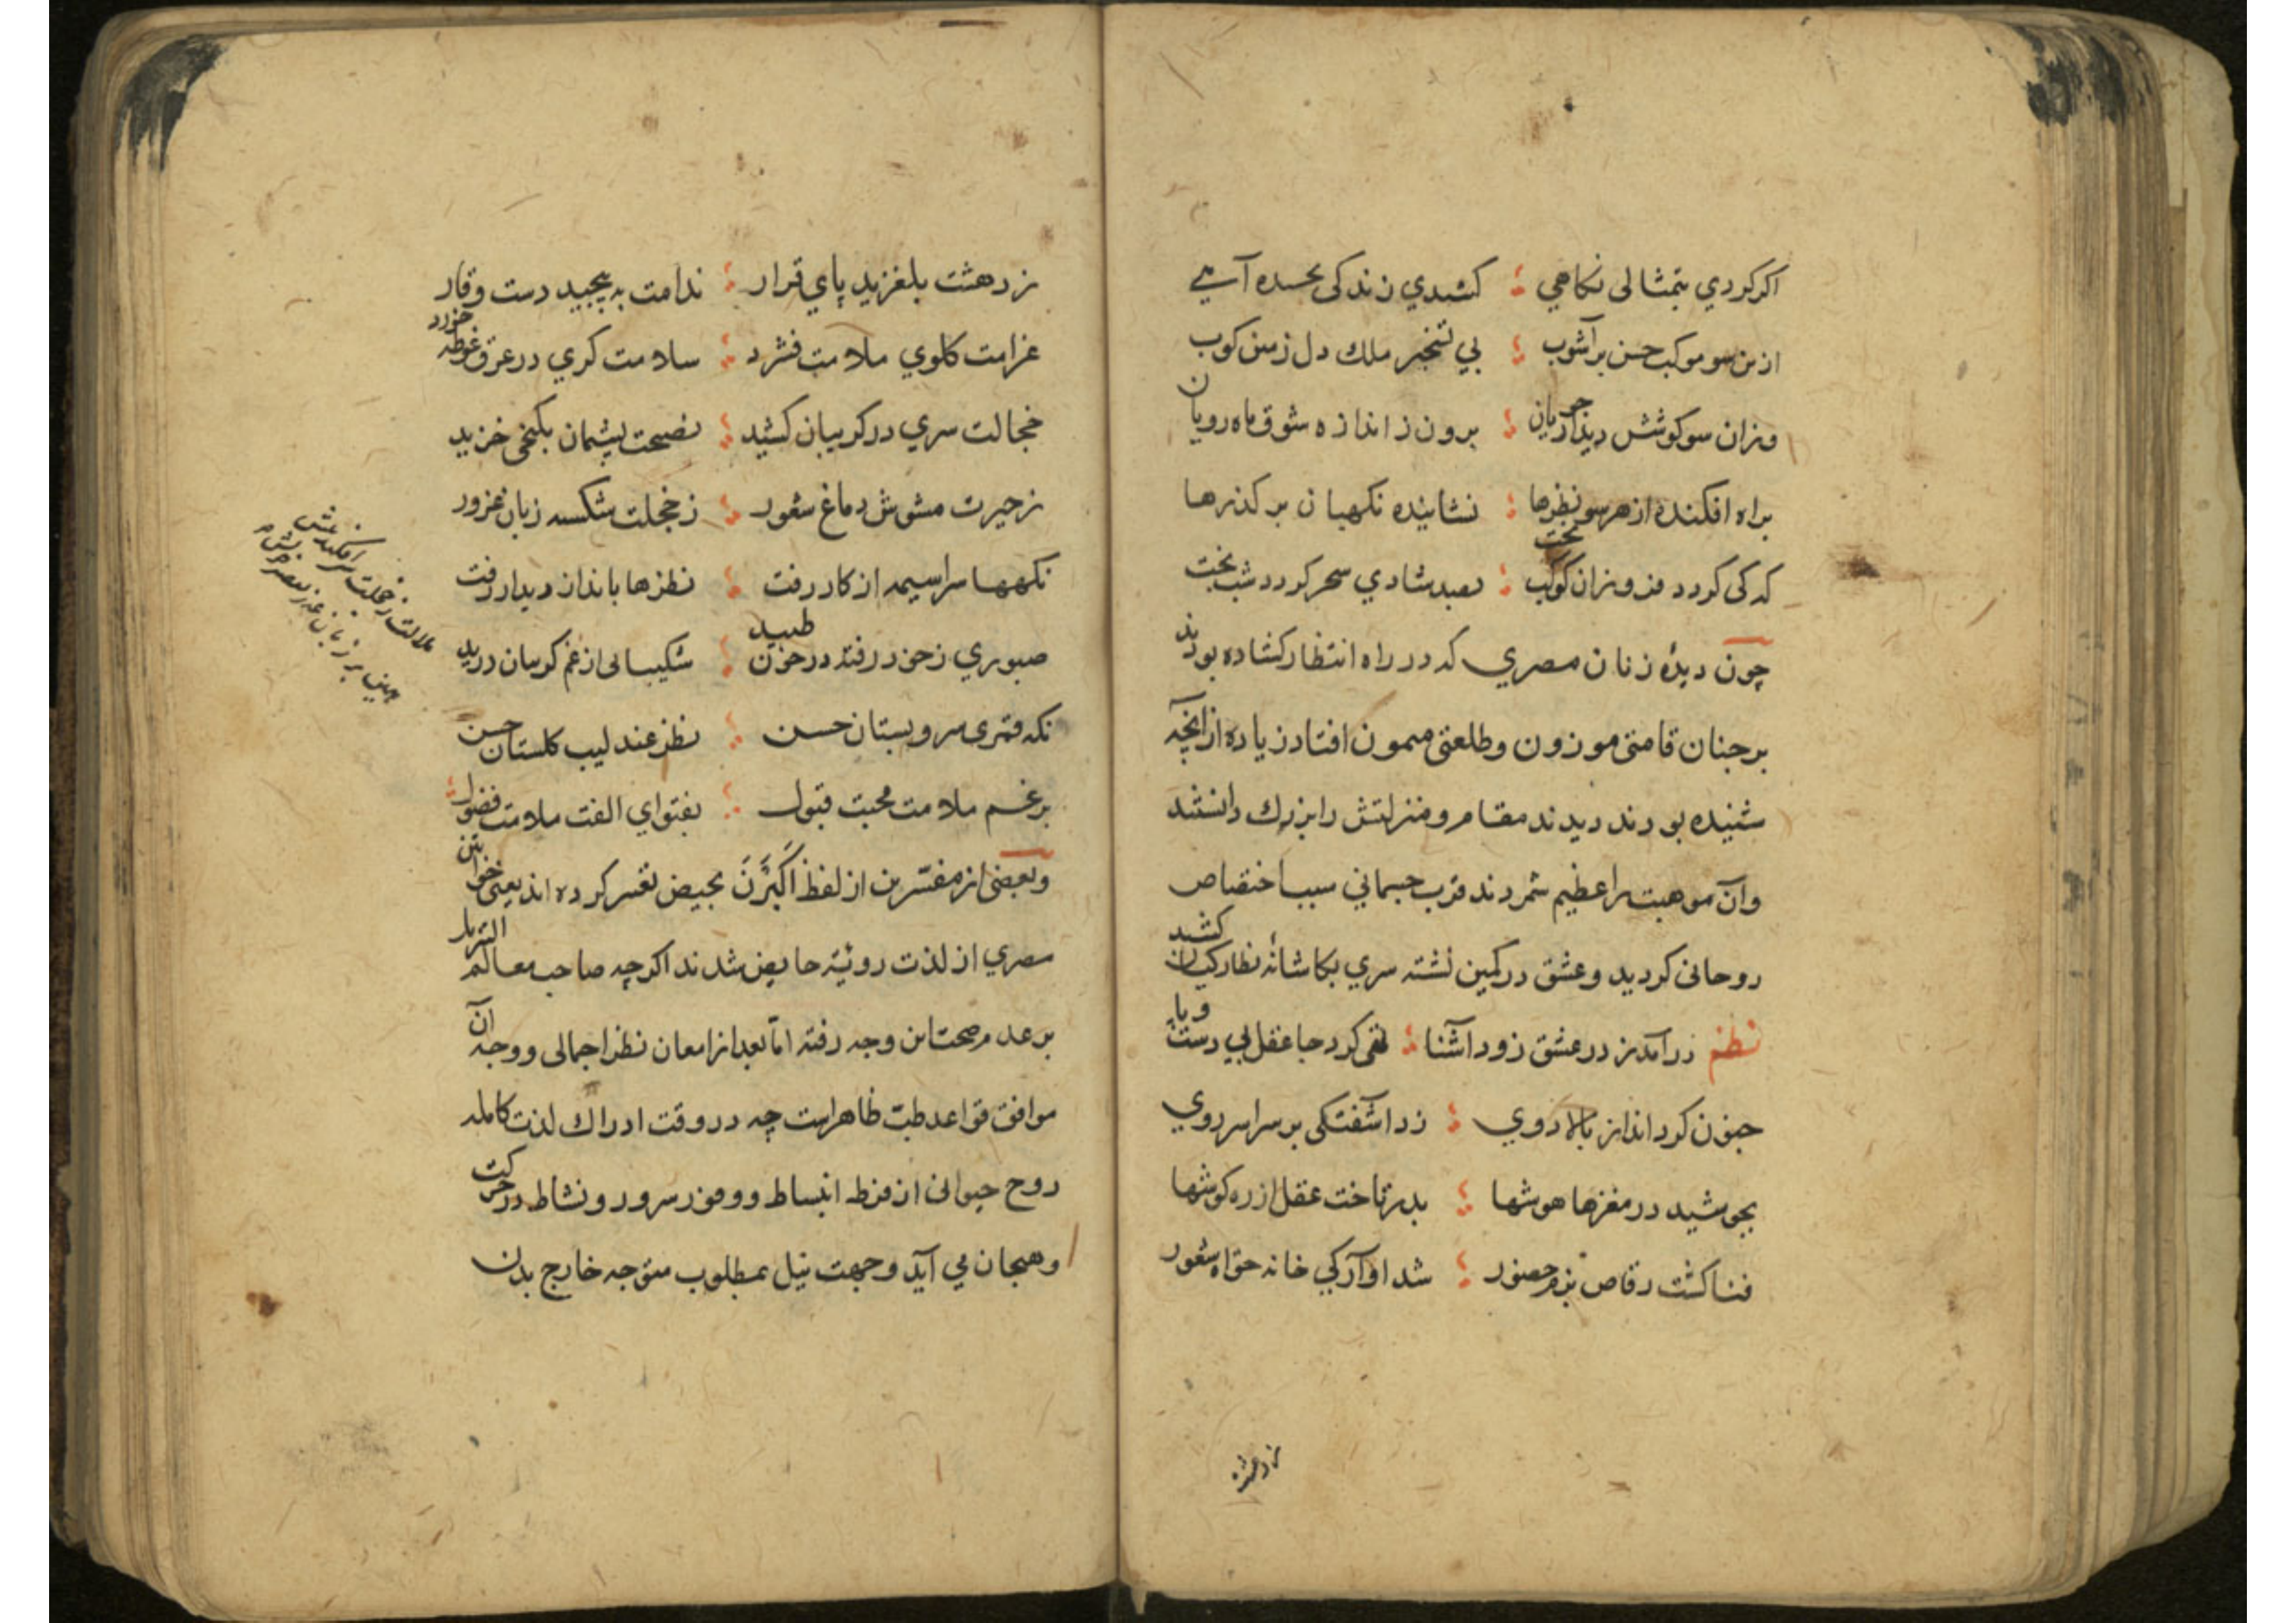 اکر کردي بتمثالی نکاهي ؛ کشیدي زندکی بحسده آهے
ازین سو موکب حسن بر آشوب ؛ پي تسخیر ملك دل زمین کوب
وزان سو کوشش دیدار جویان ؛ برون ز اندازه شوق ماه رویان
براه افکنده از هر سو نظرها ؛ نشانیده نکهبان بر کذرها
که کی کردد فروزان کوکب بخت ؛ بصبد شادي سحر کردد شب بخت
چون دیدۀ زنان مصري که در راه انتظار کشاده بودند
بر چنان قامتی موزون وطلعتی میمون افتاد زیاده از آنچه
شنیده بودند دیدند مقام ومنزلتش را بزرك دانستند
وآن موهبت را عظیم شمردند قرب جسماني سبب اختصاص
روحانی کردید وعشق در کمین نشسته سري بکاشانۀ نظارکیان کشید
نظم درآمد ز در عشق زود آشنا ؛ تهی کرد جا عقل بي دست وپا
جنون کرد انداز بالا دوي ؛ زد آشفتکی بر سر اسر روي
بجوشید در مغزها هوشها ؛ بدر تاخت عقل از ره کوشها
فنا کشت رقاص بزم حضور ؛ شد آوارکي خانه خواه شعور
ز دهشت
ز دهشت بلغزید پاي قرار ؛ ندامت به پیچید دست وقار
غرامت کلوي ملامت فشرد ؛ سلامت کري در عرق غوطه خورد
خجالت سري در کریبان کشید ؛ نصیحت پشیمان بکنجی خزید
ز حیرت مشوش دماغ شعور ؛ ز خجلت شکسته زبان غرور
نکهها سراسیمه از کار رفت ؛ نظرها بانداز دیدار رفت
صبوري ز خود رفته در خون طپید ؛ شکیبائی از غم کریبان درید
نکه قمری سرو بستان حسن ؛ نظر عندلیب کلستان حسن
برغم ملامت محبت قبول ؛ بفتواي الفت ملامت فضول ؛
وبعضی از مفسّرین از لفظ اَکبَرنَ بحیض تفسیر کرده اند یعنی خواتین
مصري از لذت رویة حایض شدند اکرچه صاحب معالم التنزیل
بر عدم صحت این وجه رفته امّا بعد از امعان نظر اجمالی ووجه آن
موافق قواعد طبّ ظاهر است چه در وقت ادراك لذت کامله
روح حیوانی از فرط انبساط ووفور سرور ونشاط در حرکت
وهیجان مي آید وجهت نیل بمطلوب متوجه خارج بدن
ملالت ز خجلت سر افکنده پیش